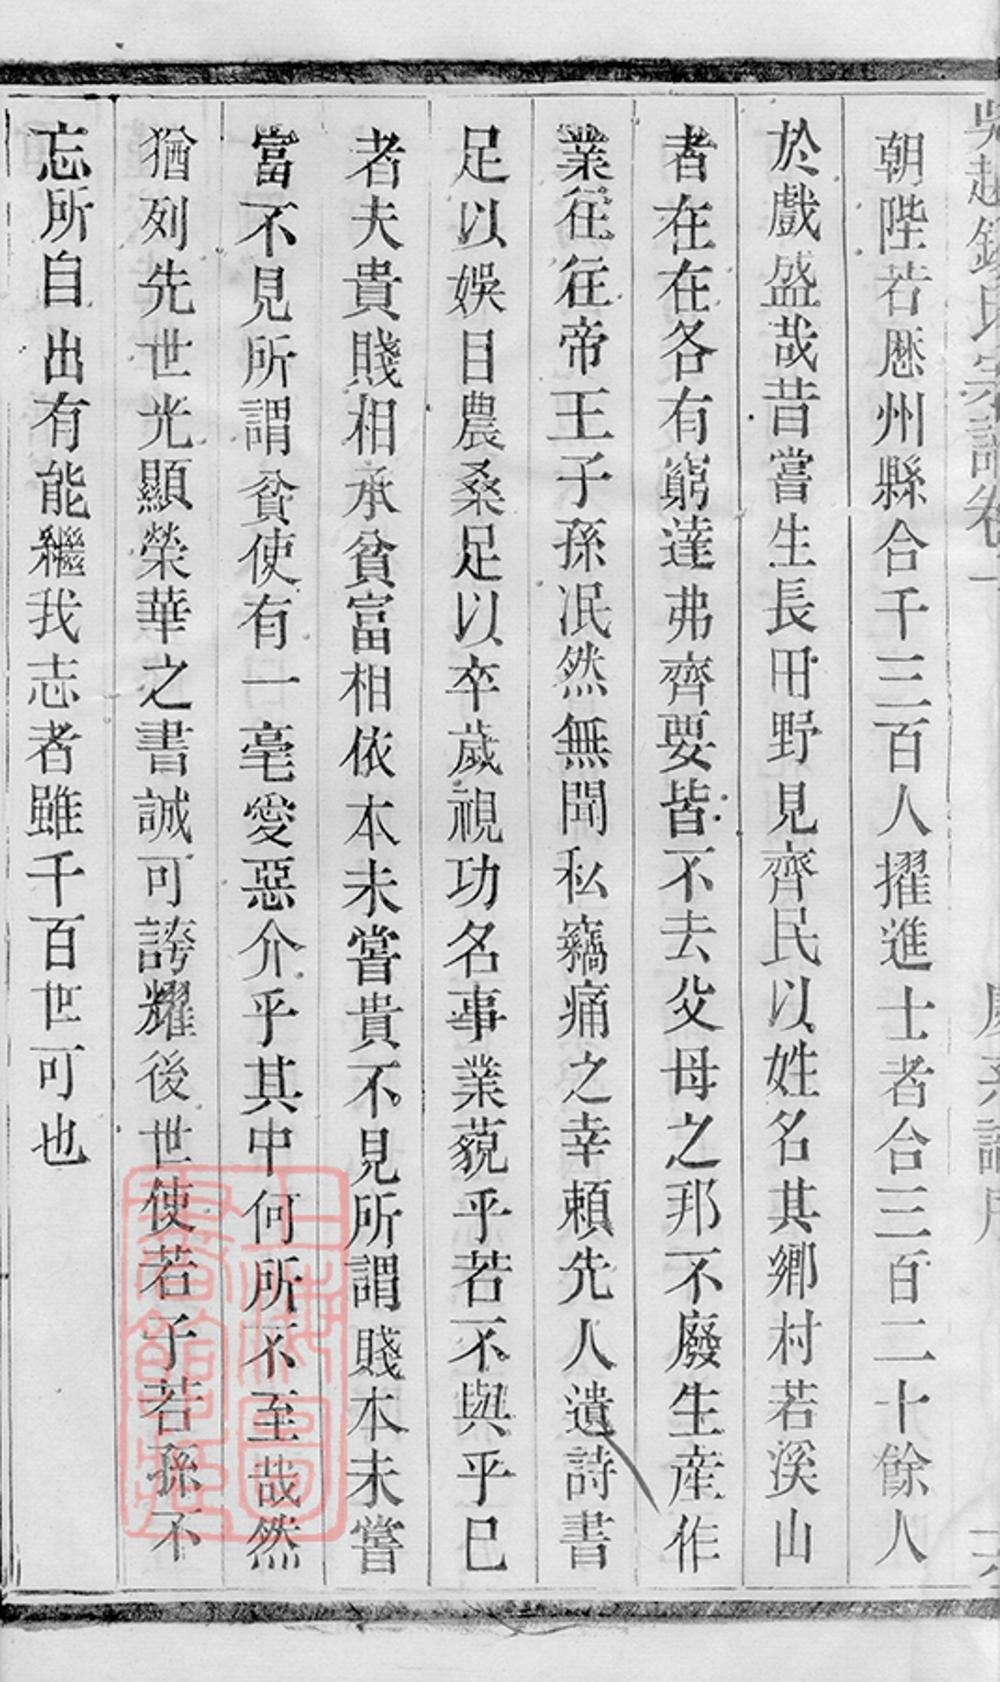 吳越錢氏宗譜卷一
慶系譜序
朝陛若歷州縣合千三百人擢進士者合三百二十餘人
於戲盛哉昔嘗生長田野見齊民以姓名其鄉村若溪山
者在在各有窮達弗齊要皆不去父母之邦不廢生產作
業往往帝王子孫泯然無聞私竊痛之幸賴先人遺詩書
足以娛目農桑足以卒歲視功名事業藐乎若不與乎已
者夫貴賤相承貧富相依本未嘗貴不見所謂賤本未嘗
富不見所謂貧使有一毫愛惡介乎其中何所不至哉然
猶列先世光顯榮華之書誠可誇耀後世使若子若孫不
忘所自出有能繼我志者雖千百世可也
上海圖書館藏